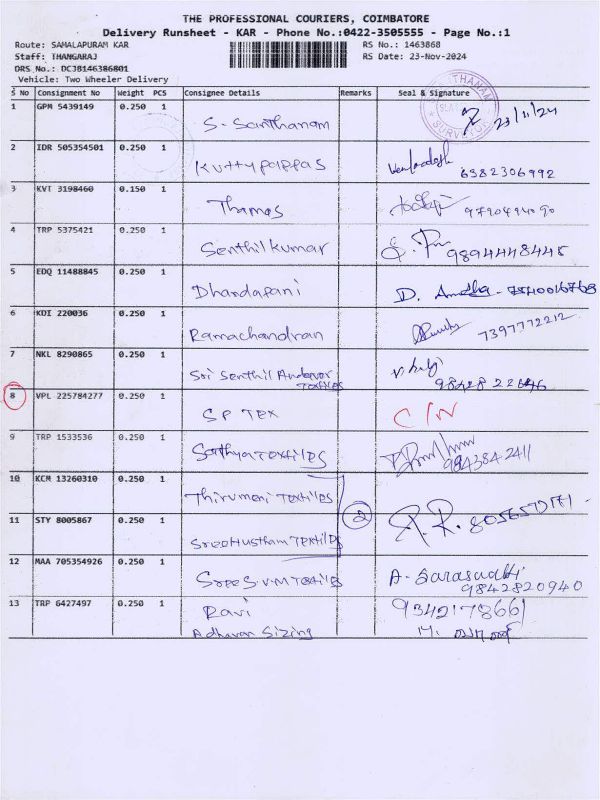 THE PROFESSIONAL COURIERS, COIMBATORE
Delivery Runsheet - KAR - Phone No.:0422-3505555 - Page No.:1
Route: SAMALAPURAM KAR RS No.: 1463868
Staff: THANGARAJ RS Date: 23-Nov-2024
DRS No.: DCJB146386801
Vehicle: Two Wheeler Delivery
S No Consignment No Weight PCS Consignee Details Remarks Seal & Signature
1 GPM 5439149 0.250 1 S. Santhanam 23/11/24
2 IDR 505354501 0.250 1 Kuttypappas Venkatesh 6382306992
3 KVT 3198460 0.150 1 Thamas
4 TRP 5375421 0.250 1 Senthilkumar 9894448445
5 EDQ 11488845 0.250 1 Dhandapani D.
6 KDI 220036 0.250 1 Ramachandran 7397772212
7 NKL 8290865 0.250 1 Sri Senthil Andavar
Textiles 98428 22646
8 VPL 225784277 0.250 1 SP TEX C/N
9 TRP 1533536 0.250 1 Sathya Textiles 9843842411
10 KCM 13260310 0.250 1 Thirumani Textiles
2
11 STY 8005867 0.250 1 Sree Hustham Textiles
12 MAA 705354926 0.250 1 Sree S.V.M Textiles A. Saraswathi
9842820940
13 TRP 6427497 0.250 1 Ravi 9342178661
Adhavan Sizing